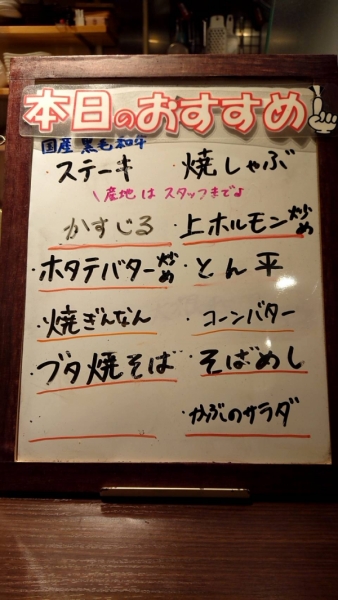 本日のおすすめ
国産 黒毛和牛
・ステーキ ・焼しゃぶ
\産地は スタッフまでよ
かすじる ・上ホルモン炒め
・ホタテバター炒め ・とん平
・焼ぎんなん ・コーンバター
・ブタ焼そば ・そばめし
・かぶのサラダ